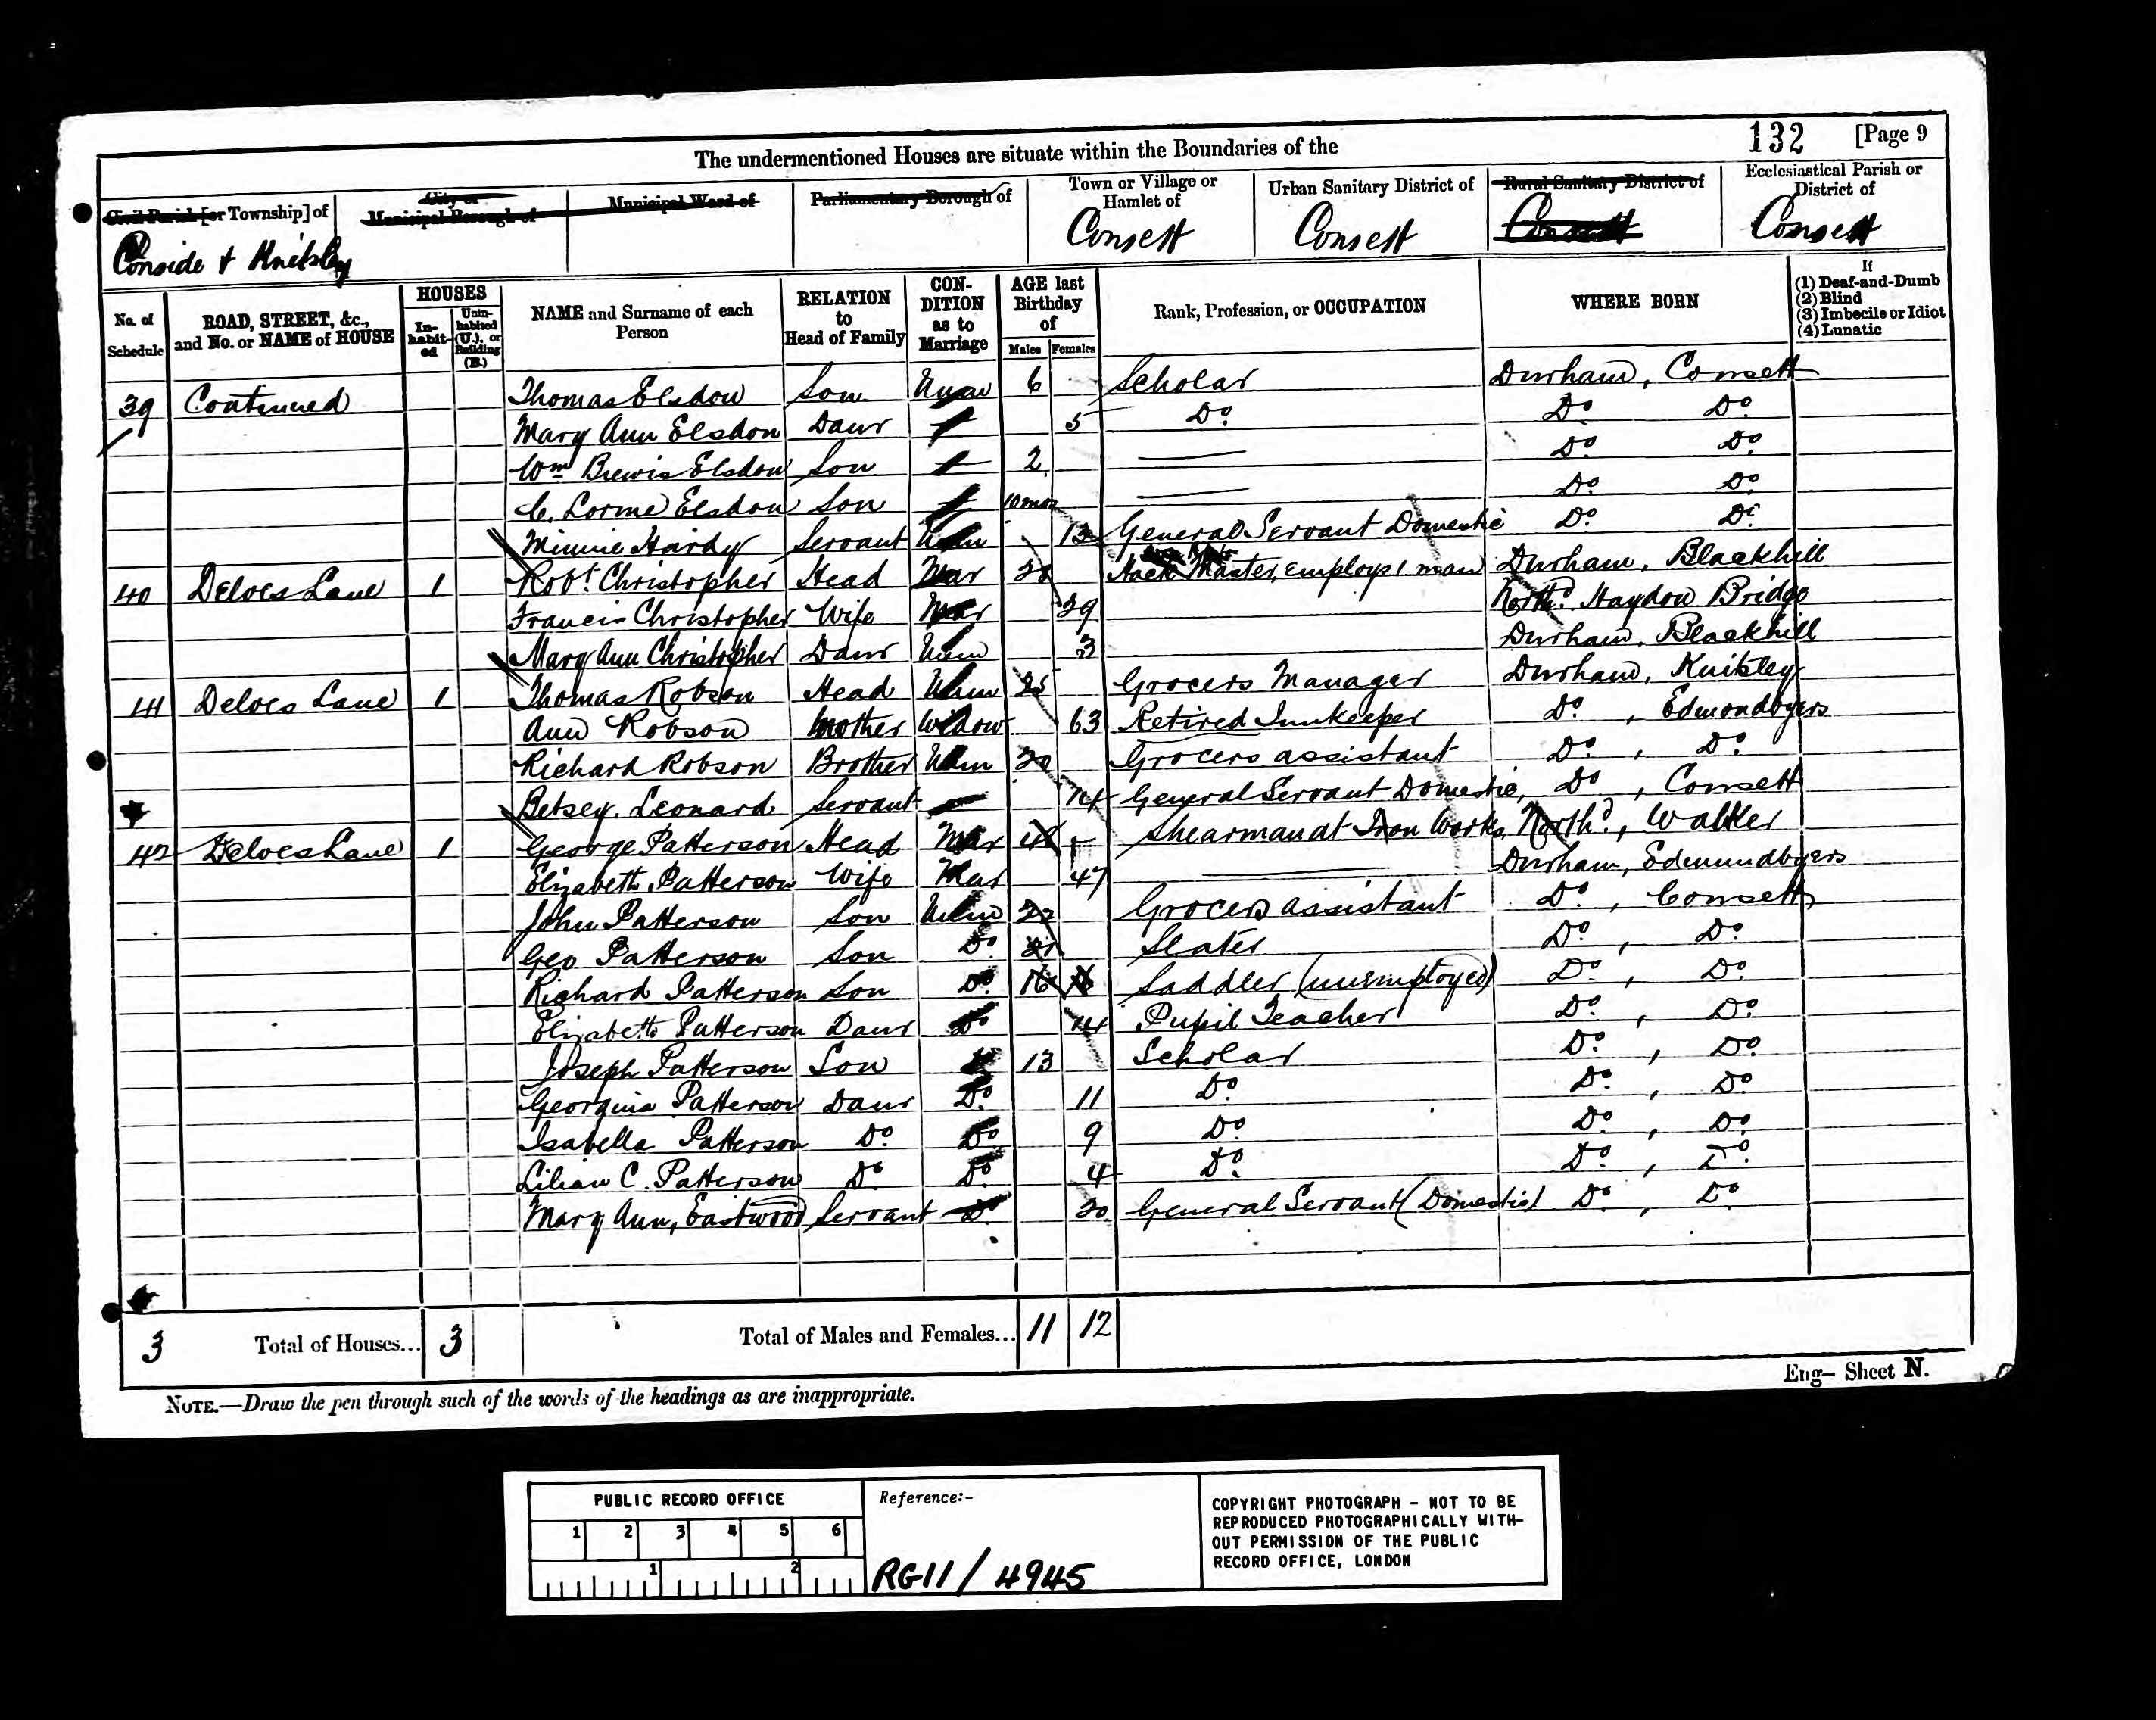 The undermentioned Houses are situate within the Boundaries of the 132 [Page 9
Civil Parish [or Township] of City or Municipal Borough of Municipal Ward of Parliamentary Borough of Town or Village or Hamlet of Urban Sanitary District of Rural Sanitary District of Ecclesiastical Parish or District of
Conside & Knitsley Consett Consett Consett Consett
No. of Schedule ROAD, STREET, &c., and No. or NAME of HOUSE HOUSES Inhabited Uninhabited (U.), or Building (B.) NAME and Surname of each Person RELATION to Head of Family CONDITION as to Marriage AGE last Birthday of Males Females Rank, Profession, or OCCUPATION WHERE BORN If (1) Deaf-and-Dumb (2) Blind (3) Imbecile or Idiot (4) Lunatic
39 Continued Thomas Elsdon Son Unm 6 Scholar Durham, Consett
Mary Ann Elsdon Daur 5 Do. Do. Do.
Wm Brewis Elsdon Son 2 Do Do.
C. Lorme Elsdon Son 10 mos Do. Do.
Minnie Hardy Servant Unm 13 General Servant Domestic Do. Do.
40 Delves Lane 1 Robt. Christopher Head Mar Master, employs 1 man Durham, Blackhill
Francis Christopher Wife Mar 29 Northd. Haydon Bridge
Mary Ann Christopher Daur Unm 3 Durham, Blackhill
41 Delves Lane 1 Thomas Robson Head Unm 25 Grocers Manager Durham, Knitsley
Ann Robson Mother Widow 63 Retired Innkeeper Do. , Edmondbyers
Richard Robson Brother Unm Grocers assistant Do. , Do.
Betsey. Leonard Servant 14 General Servant Domestic, Do , Consett
42 Delves Lane 1 George Patterson Head Mar 48 Shearman at Iron Works, Northd., Walker
Elizabeth Patterson Wife Mar 47 Durham, Edmundbyers
John Patterson Son Unm Grocers assistant Do. , Consett
Geo Patterson Son Do. 21 Slater Do. , Do.
Richard Patterson Son Do. 16 Saddler (unemployed) Do. , Do.
Elizabeth Patterson Daur Do 14 Pupil Teacher Do. , Do.
Joseph Patterson Son 13 Scholar Do. , Do
Georgina Patterson Daur Do. 11 Do. Do. , Do
Isabella Patterson Do. Do 9 Do. Do. , Do.
Lilian C. Patterson Do. Do. 4 Do. Do. , Do.
Mary Ann, Eastwood Servant Do 20 General Servant (Domestic) Do. , Do.
3 Total of Houses... 3 Total of Males and Females... 11 12
Eng— Sheet N.
NOTE.—Draw the pen through such of the words of the headings as are inappropriate.
PUBLIC RECORD OFFICE
1 2 3 4 5 6
1 2
Reference:-
RG11 / 4945
COPYRIGHT PHOTOGRAPH - NOT TO BE
REPRODUCED PHOTOGRAPHICALLY WITH-
OUT PERMISSION OF THE PUBLIC
RECORD OFFICE, LONDON